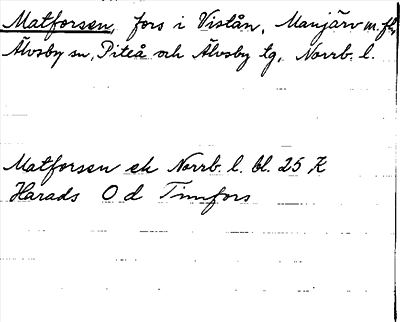 Matforsen, fors i Vistån, Manjärv m. fl.
Älvsby sn, Piteå och Älvsby tg, Norrb. l.
Matforsen ek Norrb. l. bl. 25 K
Harads O d Timfors